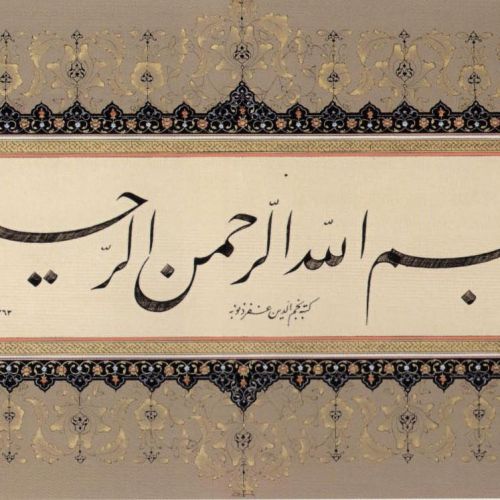 بسم الله الرّحمن الرّحیـ
کتبه نجم الدّین غفر ذنوبه